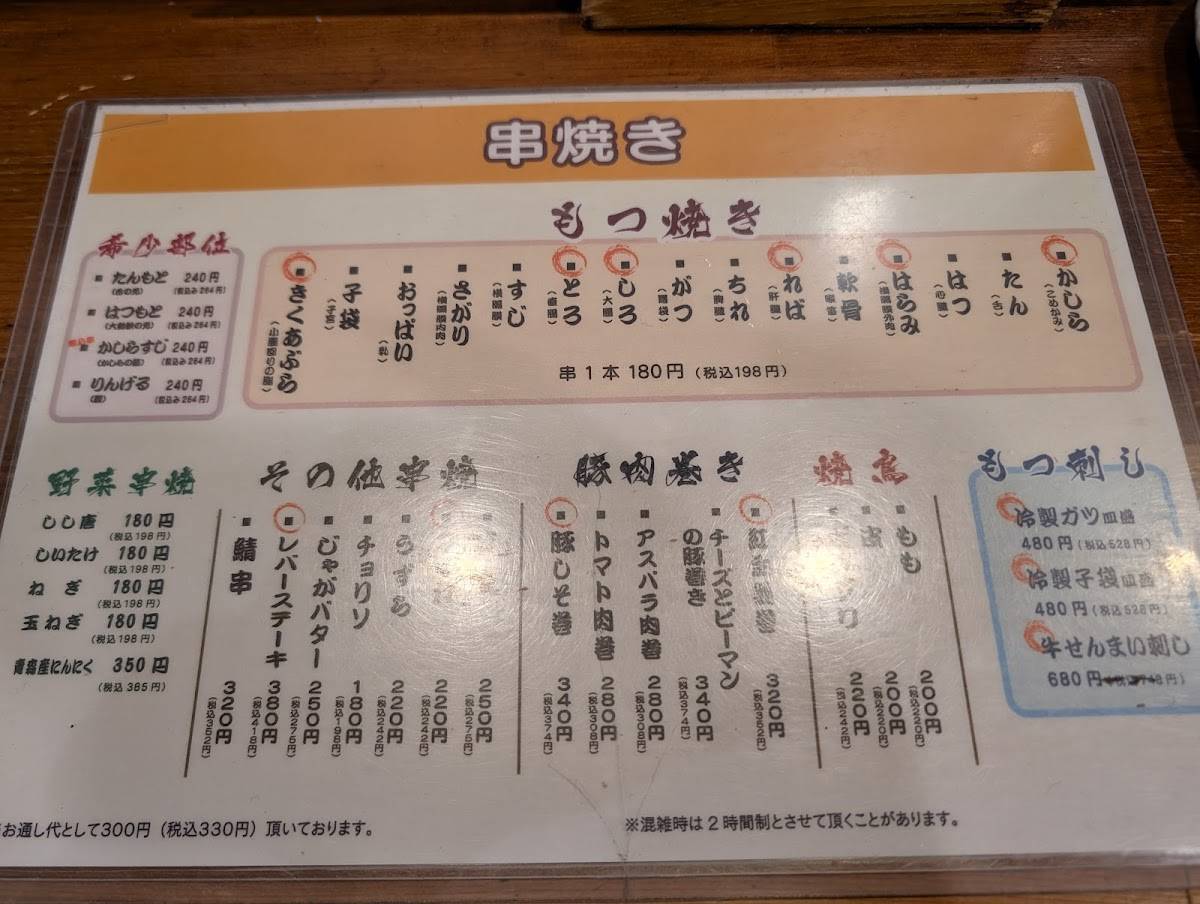 串焼き
もつ焼き
かしら
(こめかみ)
たん
(舌)
はつ
(心臓)
はらみ
(横隔膜外肉)
軟骨
(喉笛)
れば
(肝臓)
ちれ
(脾臓)
がつ
(胃袋)
しろ
(大腸)
とろ
(直腸)
すじ
(横隔膜)
さがり
(横隔膜内肉)
おっぱい
(乳)
子袋
(子宮)
きくあぶら
(小腸周りの脂)
串1本 180円 (税込198円)
希少部位
たんもと 240円
(税込み264円)
はつもと 240円
(税込み264円)
かしらすじ 240円
(税込み264円)
りんげる 240円
(税込み264円)
もつ刺し
冷製ガツ皿盛
480円(税込528円)
冷製子袋皿盛
480円(税込528円)
牛せんまい刺し
680円(税込748円)
焼鳥
もも 200円
(税込220円)
皮 200円
(税込220円)
220円
(税込242円)
豚肉巻き
320円
(税込352円)
チーズとピーマンの豚巻き 340円
(税込374円)
アスパラ肉巻 280円
(税込308円)
トマト肉巻 280円
(税込308円)
豚しそ巻 340円
(税込374円)
その他串焼
250円
(税込275円)
220円
(税込242円)
うずら 220円
(税込242円)
チョリソ 180円
(税込198円)
じゃがバター 250円
(税込275円)
レバーステーキ 380円
(税込418円)
鯖串 320円
(税込352円)
野菜串焼
しし唐 180円
(税込198円)
しいたけ 180円
(税込198円)
ねぎ 180円
(税込198円)
玉ねぎ 180円
(税込198円)
青森産にんにく 350円
(税込385円)
お通し代として300円(税込330円)頂いております。
※混雑時は2時間制とさせて頂くことがあります。